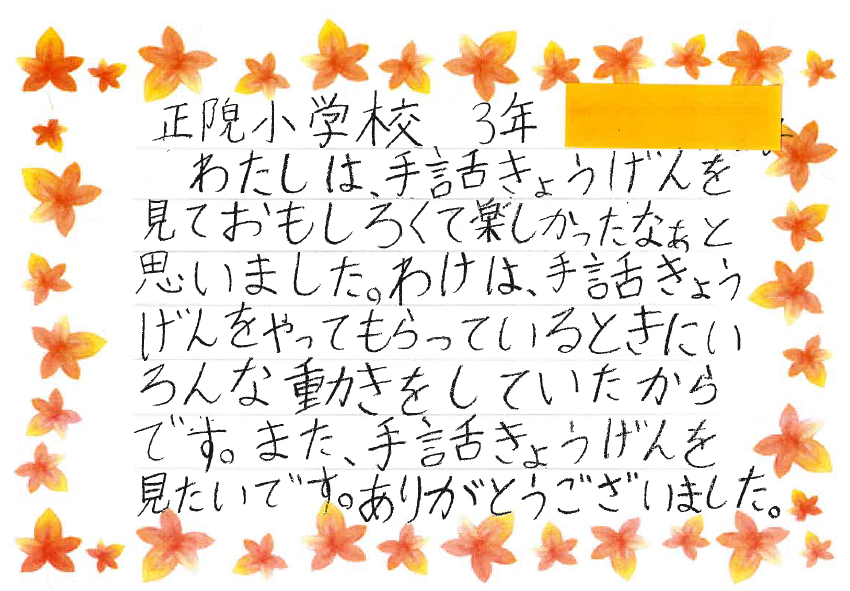 正院小学校 3年
わたしは、手話きょうげんを
見ておもしろくて楽しかったなぁと
思いました。わけは、手話きょう
げんをやってもらっているときにい
ろんな動きをしていたから
です。また、手話きょうげんを
見たいです。ありがとうございました。